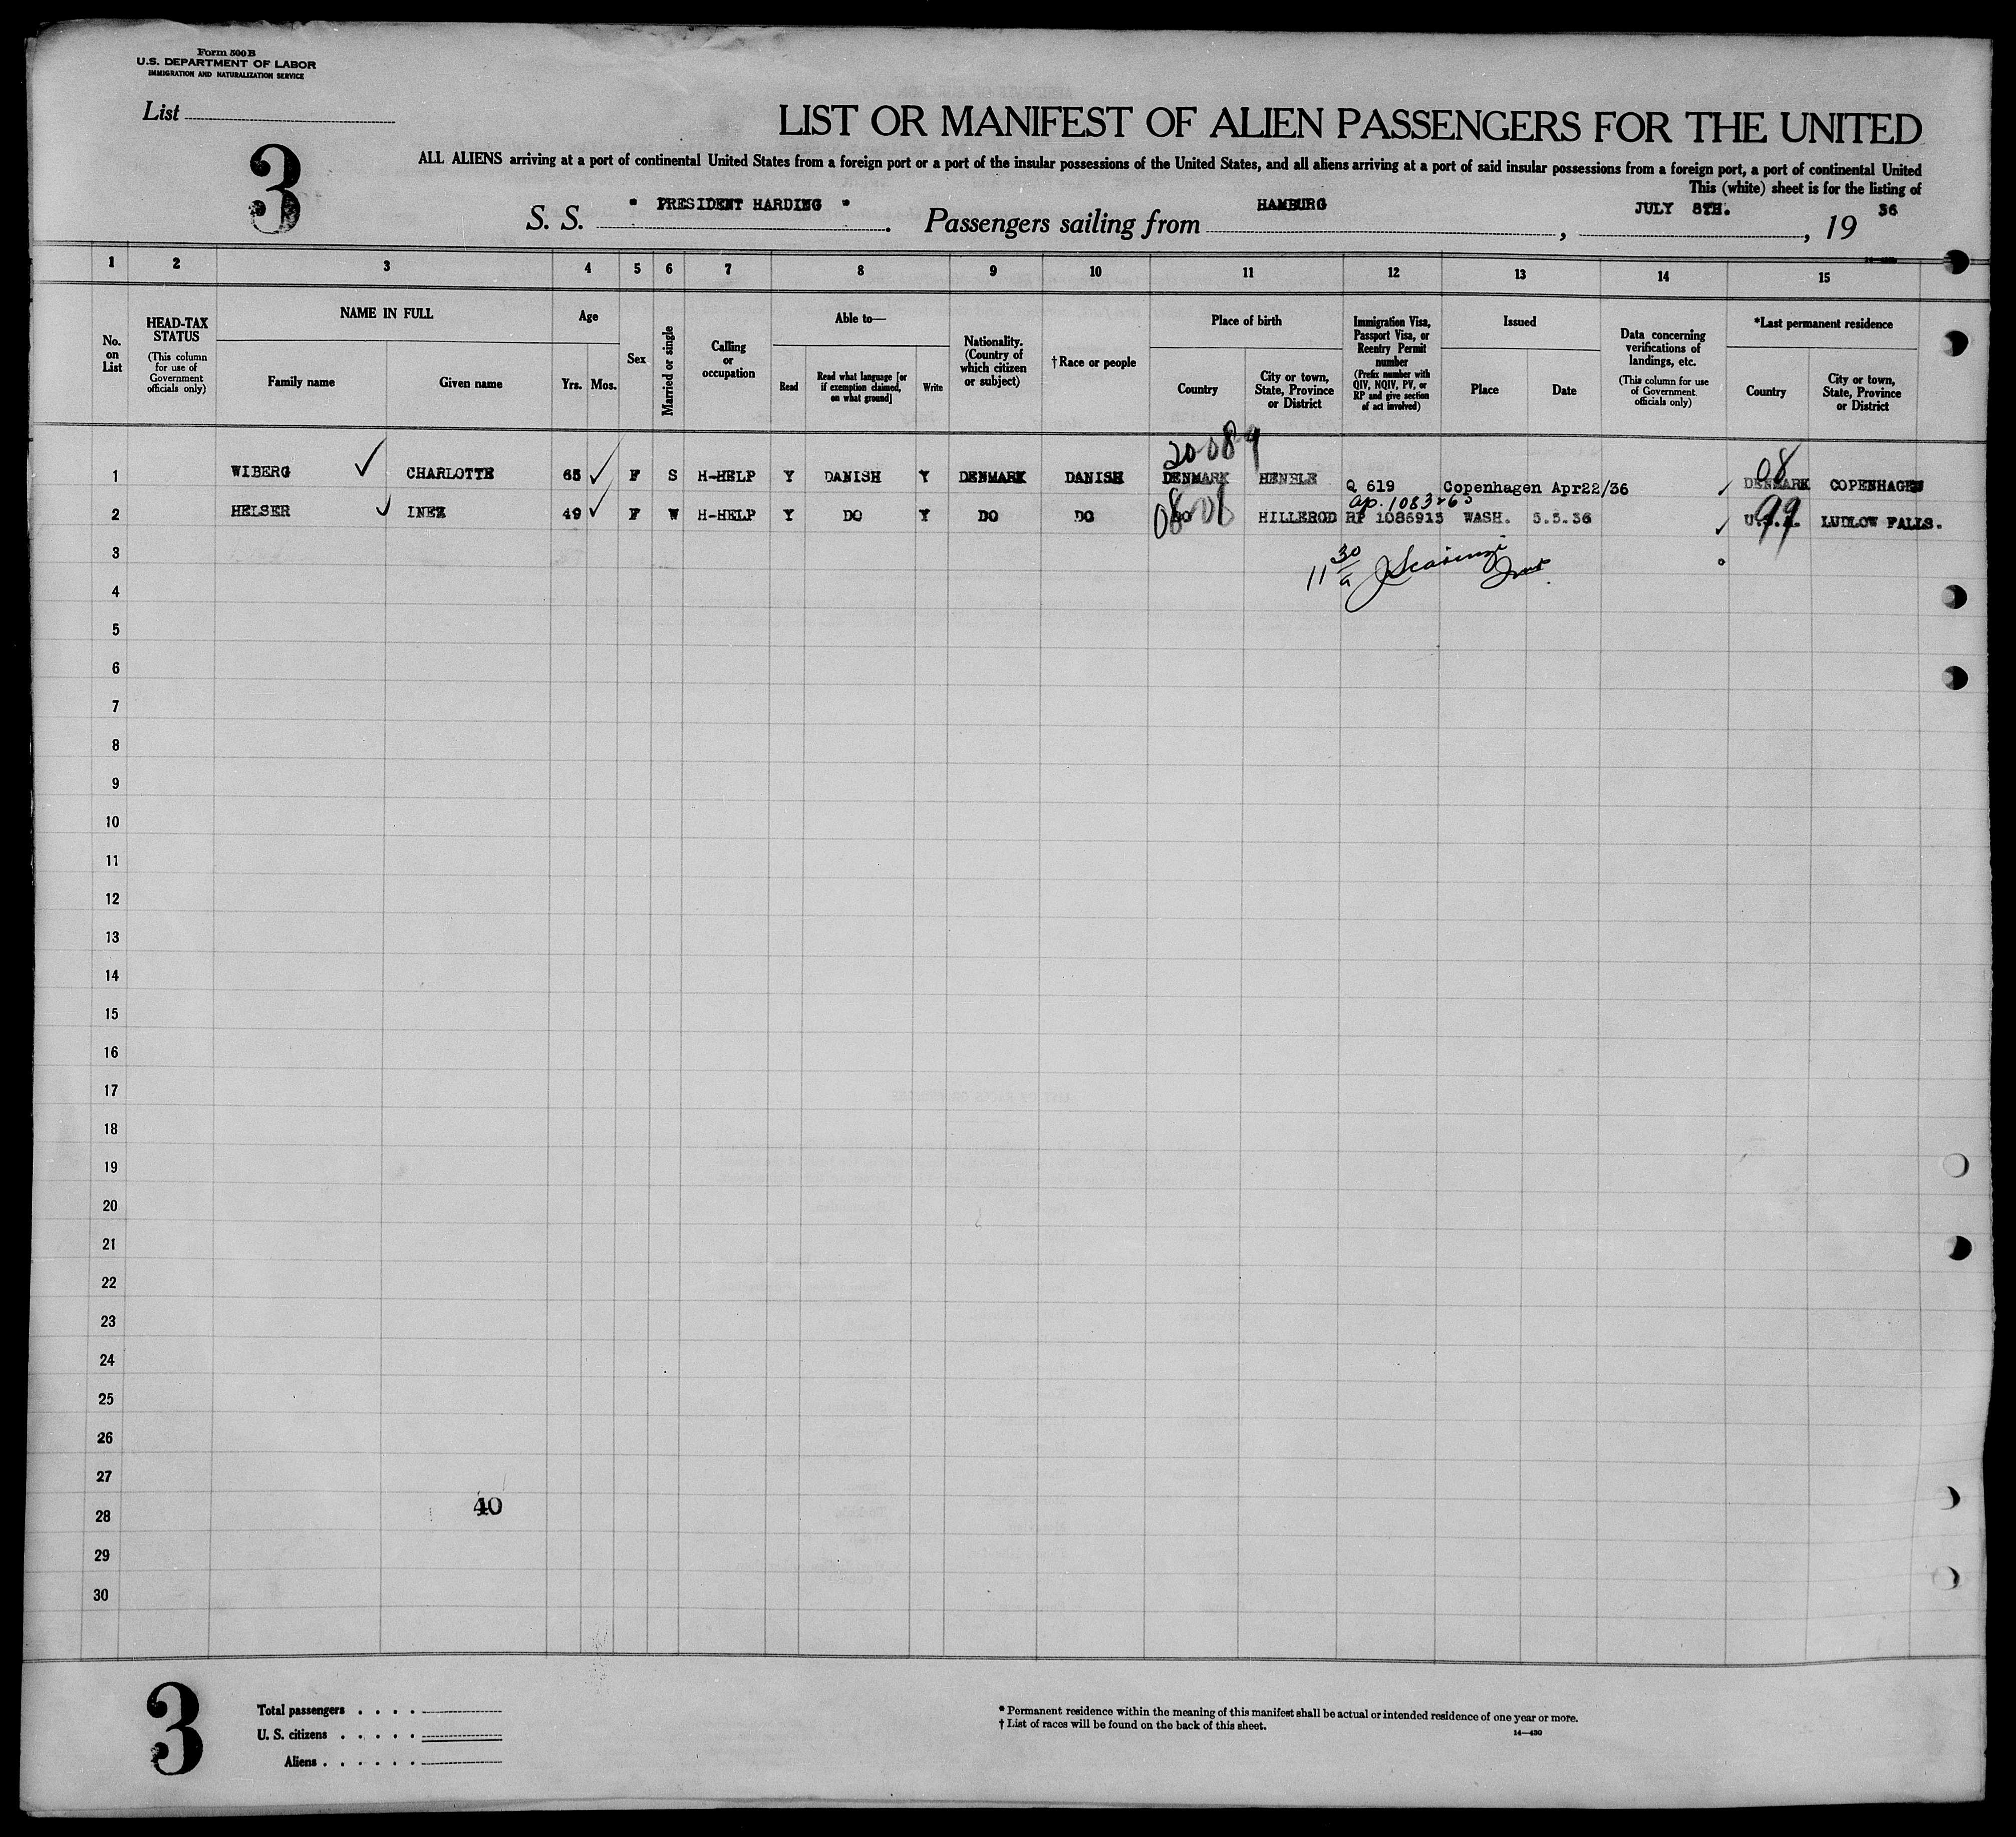 Form 500 B
U.S. DEPARTMENT OF LABOR
IMMIGRATION AND NATURALIZATION SERVICE
List
3
LIST OR MANIFEST OF ALIEN PASSENGERS FOR THE UNITED
ALL ALIENS arriving at a port of continental United States from a foreign port or a port of the insular possessions of the United States, and all aliens arriving at a port of said insular possessions from a foreign port, a port of continental United
This (white) sheet is for the listing of
S. S. " PRESIDENT HARDING ". Passengers sailing from HAMBURG, JULY 8TH., 19 36
1 2 3 4 5 6 7 8 9 10 11 12 13 14 15
No. on List
HEAD-TAX STATUS (This column for use of Government officials only)
NAME IN FULL
Family name Given name
Age
Yrs. Mos.
Sex
Married or single
Calling or occupation
Able to—
Read Read what language [or if exemption claimed, on what ground] Write
Nationality. (Country of which citizen or subject)
† Race or people
Place of birth
Country City or town, State, Province or District
Immigration Visa, Passport Visa, or Reentry Permit number (Prefix number with QIV, NQIV, PV, or RP and give section of act involved)
Issued
Place Date
Data concerning verifications of landings, etc. (This column for use of Government officials only)
*Last permanent residence
Country City or town, State, Province or District
20-089 08
1 WIBERG ✓ CHARLOTTE 65 ✓ F S H-HELP Y DANISH Y DENMARK DANISH DENMARK Q 619 Copenhagen Apr22/36 ✓ DENMARK COPENHAGEN
ap. 1083263
2 HELSER ✓ INEZ 49 ✓ F W H-HELP Y DO Y DO DO DO HILLEROD RP 1086913 WASH. 5.5.36 ✓ U.S.A. LUDLOW FALLS.
08 99
3
11 30/a
4
5
6
7
8
9
10
11
12
13
14
15
16
17
18
19
20
21
22
23
24
25
26
27
40
28
29
30
3
Total passengers . . . .
U. S. citizens . . . . .
Aliens . . . . . .
* Permanent residence within the meaning of this manifest shall be actual or intended residence of one year or more.
† List of races will be found on the back of this sheet.
14—430